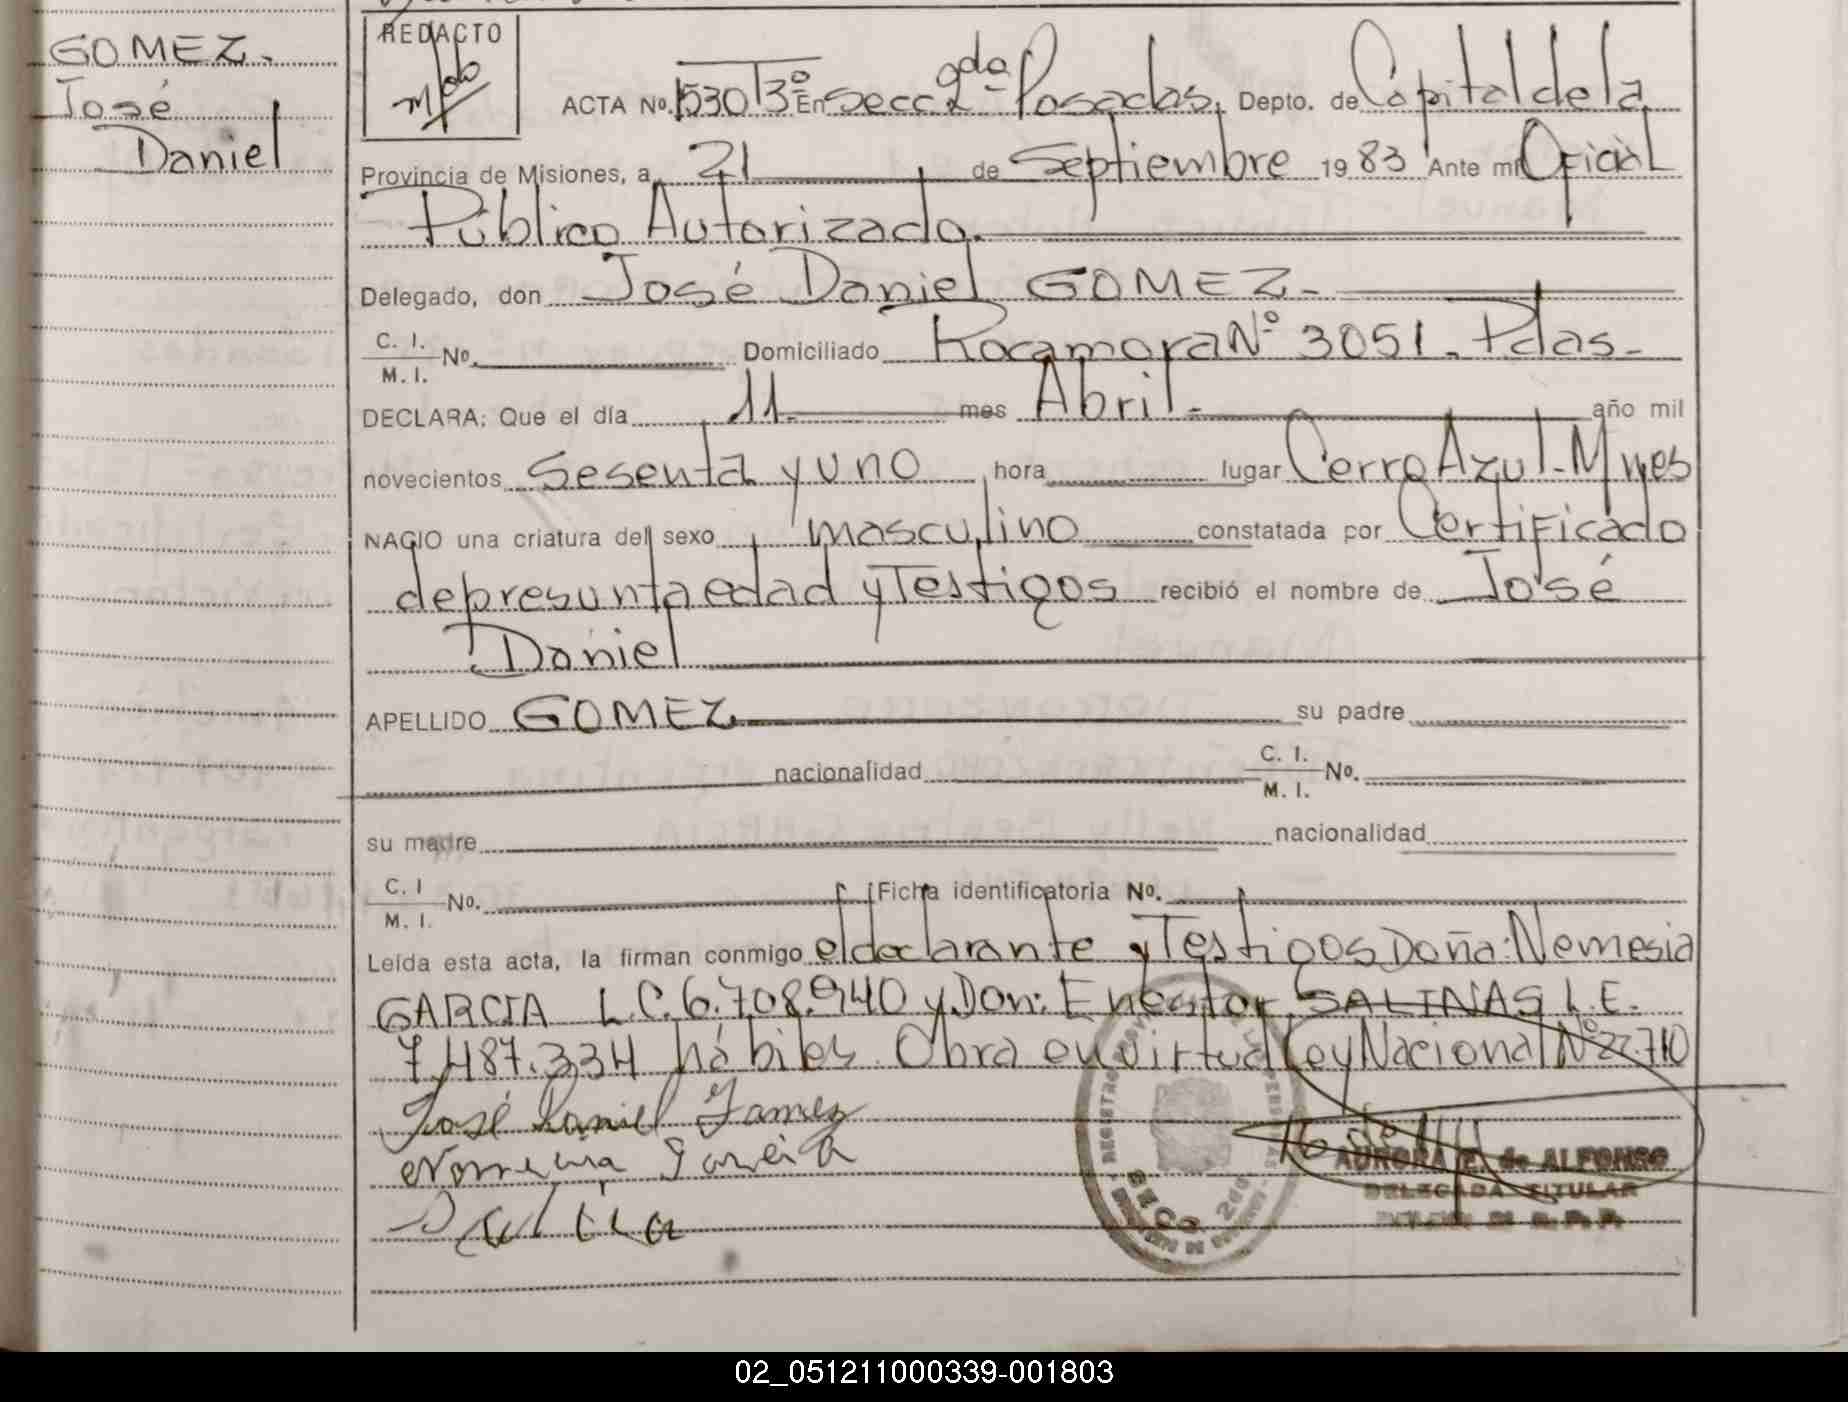 GOMEZ.
José
Daniel
REDACTO
ACTA No. 1530 T3º En Secc 2da Posadas, Depto. de Capital de la
Provincia de Misiones, a 21 de Septiembre 1983 Ante mí Oficial
Público Autorizado.
Delegado, don José Daniel GOMEZ.
C. I.
M. I. No. Domiciliado Rocamora Nº 3051. Pdas.
DECLARA: Que el día 11 mes Abril. año mil
novecientos sesenta y uno hora lugar Cerro Azul. Mnes
NACIO una criatura del sexo masculino constatada por Certificado
de presunta edad y Testigos recibió el nombre de José
Daniel
APELLIDO GOMEZ su padre
nacionalidad C. I.
M. I. No.
su madre nacionalidad
C. I
M. I. No. Ficha identificatoria No.
Leída esta acta, la firman conmigo el declarante y Testigos Doña: Nemesia
GARCIA L.C. 6.708.940 y Don: SALINAS L.E.
7.487.334 hábiles. Obra en virtud Ley Nacional Nº 22.710
José Daniel Gomez
Garcia
REGISTRO
SECC. 2da
AURORA E. de ALFONSO
DELEGADA TITULAR
02_051211000339-001803